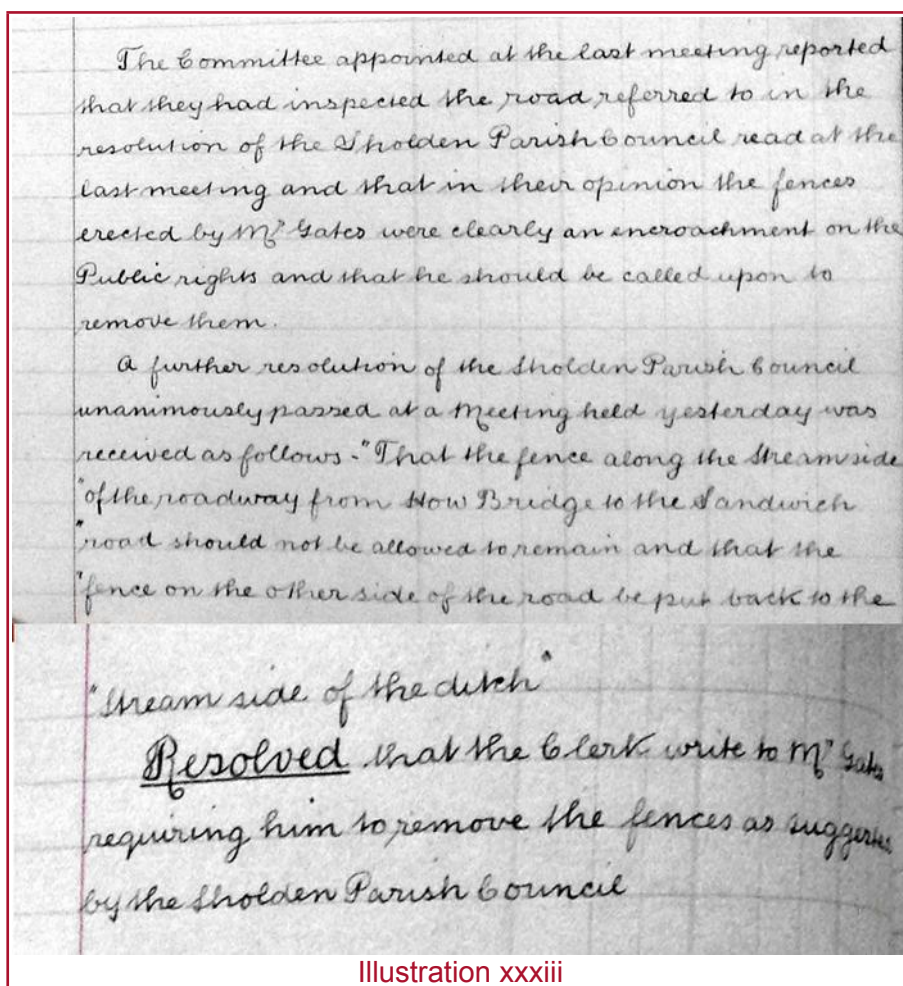 The Committee appointed at the last meeting reported
that they had inspected the road referred to in the
resolution of the Sholden Parish Council read at the
last meeting and that in their opinion the fences
erected by Mr Gates were clearly an encroachment on the
Public rights and that he should be called upon to
remove them.
A further resolution of the Sholden Parish Council
unanimously passed at a Meeting held yesterday was
received as follows - "That the fence along the Stream side
"of the roadway from How Bridge to the Sandwich
"road should not be allowed to remain and that the
"fence on the other side of the road be put back to the
"Stream side of the ditch"
Resolved that the Clerk write to Mr Gates
requiring him to remove the fences as suggested
by the Sholden Parish Council
Illustration xxxiii